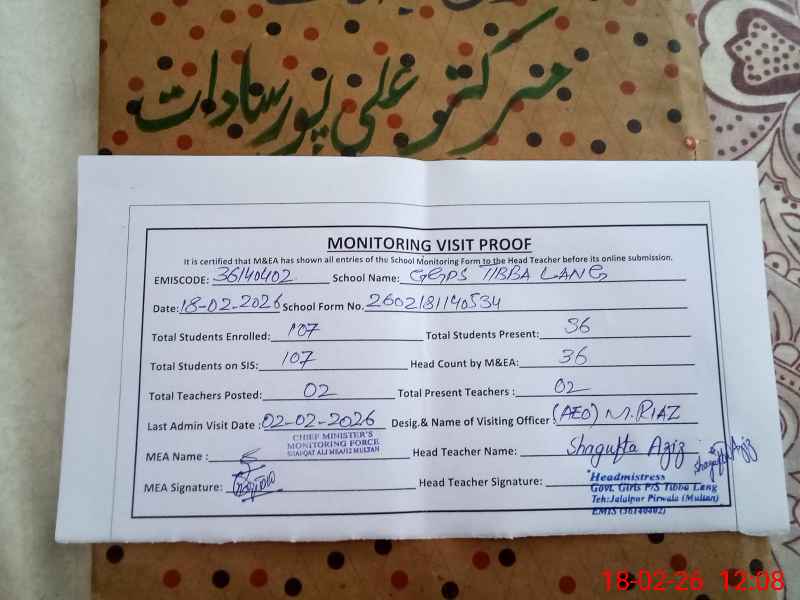 مرکز علی پور سادات
MONITORING VISIT PROOF
It is certified that M&EA has shown all entries of the School Monitoring Form to the Head Teacher before its online submission.
EMISCODE: 36140402 School Name: GGPS TIBBA LANG
Date: 18-02-2026 School Form No. 2602181140534
Total Students Enrolled: 107 Total Students Present: 36
Total Students on SIS: 107 Head Count by M&EA: 36
Total Teachers Posted: 02 Total Present Teachers : 02
Last Admin Visit Date : 02-02-2026 Desig.& Name of Visiting Officer : (AEO) M. RIAZ
CHIEF MINISTER'S
MONITORING FORCE
SHAFQAT ALI MEA#12 MULTAN
MEA Name : Head Teacher Name: Shagufta Aziz
Shagufta Aziz
MEA Signature: Head Teacher Signature:
Headmistress
Govt. Girls P/S Tibba Lang
Teh: Jalalpur Pirwala (Multan)
EMIS (36140402)
18-02-26 12:08